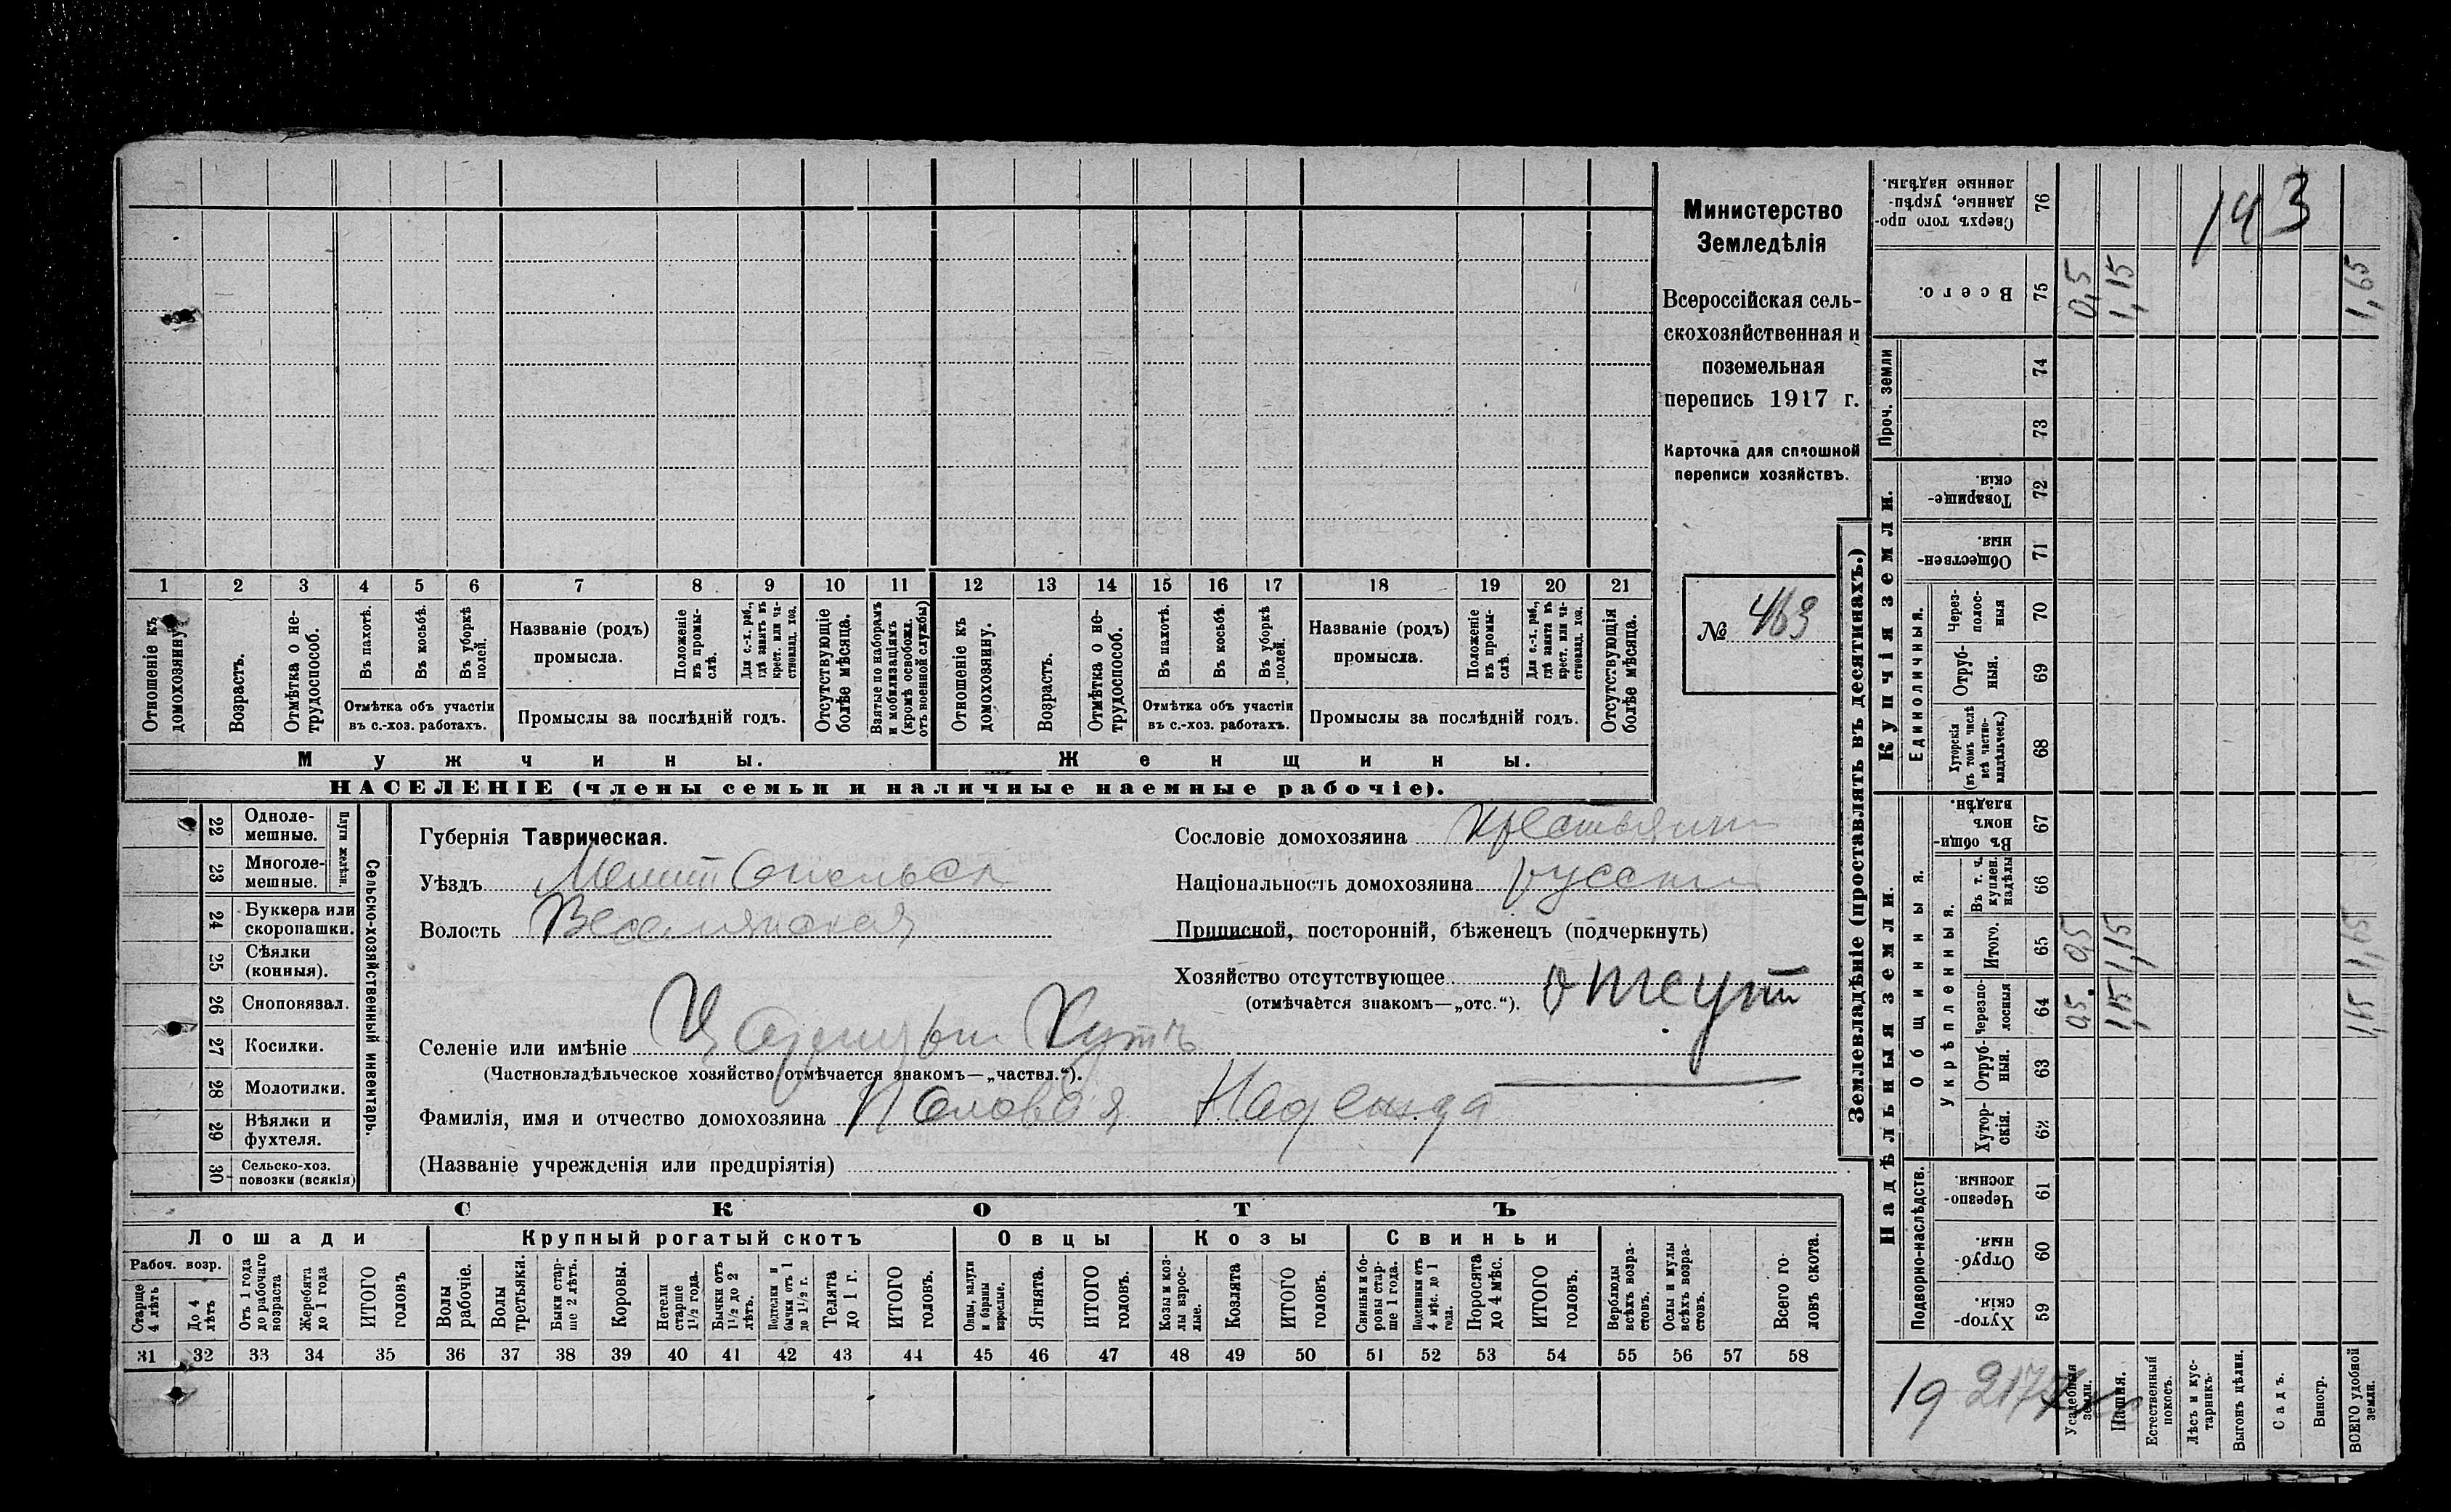 1 2 3 4 5 6 7 8 9 10 11 12 13 14 15 16 17 18 19 20 21
Отношеніе къ домохозяину.
Возрастъ.
Отмѣтка о не-
трудоспособ.
Въ пахотѣ.
Въ косьбѣ.
Въ уборкѣ
полей.
Отмѣтка объ участіи
въ с.-хоз. работахъ.
Названіе (родъ)
промысла.
Положеніе
въ промы-
слѣ.
Для с.-х. раб.,
гдѣ занятъ въ
крест. или ча-
стновлад. хоз.
Промыслы за послѣдній годъ.
Отсутствующіе
болѣе мѣсяца.
Взятые по наборамъ
и мобилизаціямъ
(кромѣ освобожд.
отъ военной службы)
Отношеніе къ
домохозяину.
Возрастъ.
Отмѣтка о не-
трудоспособ.
Въ пахотѣ.
Въ косьбѣ.
Въ уборкѣ
полей.
Отмѣтка объ участіи
въ с.-хоз. работахъ.
Названіе (родъ)
промысла.
Положеніе
въ промы-
слѣ.
Для с.-х. раб.,
гдѣ занята въ
крест. или ча-
стновлад. хоз.
Промыслы за послѣдній годъ.
Отсутствующія
болѣе мѣсяца.
Мужчины.
Женщины.
НАСЕЛЕНІЕ (члены семьи и наличные наемные рабочіе).
Министерство
Земледѣлія
Всероссійская сель-
скохозяйственная и
поземельная
перепись 1917 г.
Карточка для сплошной
переписи хозяйствъ.
№ 463
Сельско-хозяйственный инвентарь.
Плуги желѣзн.
22 Одноле-
мешные.
23 Многоле-
мешные.
24 Буккера или
скоропашки.
25 Сѣялки
(конныя).
26 Сноповязал.
27 Косилки.
28 Молотилки.
29 Вѣялки и
фухтеля.
30 Сельско-хоз.
повозки (всякія)
Губернія Таврическая.
Уѣздъ Мелитопольск
Волость Веселянская
Сословіе домохозяина крестьянин
Національность домохозяина русский
Приписной, посторонній, бѣженецъ (подчеркнуть)
Хозяйство отсутствующее отсут
(отмѣчается знакомъ—„отс.“).
Селеніе или имѣніе Царицын Кутъ
(Частновладѣльческое хозяйство отмѣчается знакомъ—„частвл.“).
Фамилія, имя и отчество домохозяина Половая Надежда
(Названіе учрежденія или предпріятія)
СКОТЪ
Лошади
Крупный рогатый скотъ
Овцы
Козы
Свиньи
Рабоч. возр.
Старше
4 лѣтъ
До 4
лѣтъ
Отъ 1 года
до рабочаго
возраста
Жеребята
до 1 года
ИТОГО
головъ
Волы
рабочіе.
Волы
третьяки.
Быки стар-
ше 2 лѣтъ.
Коровы.
Нетели
старше
1½ года.
Бычки отъ
1½ до 2
лѣтъ.
Подтелки и
бычки отъ 1
до 1½ г.
Телята
до 1 г.
ИТОГО
головъ.
Овцы, валухи
и бараны
взрослые.
Ягнята.
ИТОГО
головъ.
Козы и коз-
лы взрос-
лые.
Козлята
ИТОГО
головъ.
Свиньи и бо-
ровы стар-
ше 1 года.
Подсвинки отъ
4 мѣс. до 1
года.
Поросята
до 4 мѣс.
ИТОГО
головъ.
Верблюды
всѣхъ возра-
стовъ.
Ослы и мулы
всѣхъ возра-
стовъ.
Всего го-
ловъ скота.
31 32 33 34 35 36 37 38 39 40 41 42 43 44 45 46 47 48 49 50 51 52 53 54 55 56 57 58
Землевладѣніе (проставлять въ десятинахъ.)
Надѣльныя земли.
Купчія земли.
Проч. земли
Подворно-наслѣдств.
Общинныя.
Укрѣпленныя.
Единоличныя.
59 Хутор-
скія.
60 Отруб-
ныя.
61 Черезпо-
лосныя.
62 Хутор-
скія.
63 Отруб-
ныя.
64 Черезпо-
лосныя
65 Итого.
66 Въ т. ч.
куплен.
надѣлы
67 Въ общи-
номъ
владѣн.
68 Хуторскія
(въ томъ числѣ
всѣ частно-
владѣльческ.)
69 Отруб-
ныя.
70 Через-
полос-
ныя
71 Обществен-
ныя.
72 Товарище-
скія.
73
74
75 Всего.
76 Сверхъ того про-
данные, укрѣп-
ленные надѣлы.
Усадебныя
земли.
0,5 0,5 0,5
Пашня.
1,15 1,15 1,15
Естественный
покосъ.
Лѣсъ и кус-
тарникъ.
Выгонъ цѣлин.
Садъ.
Виногр.
ВСЕГО удобной
земли.
1,65 1,65 1,65
143
19